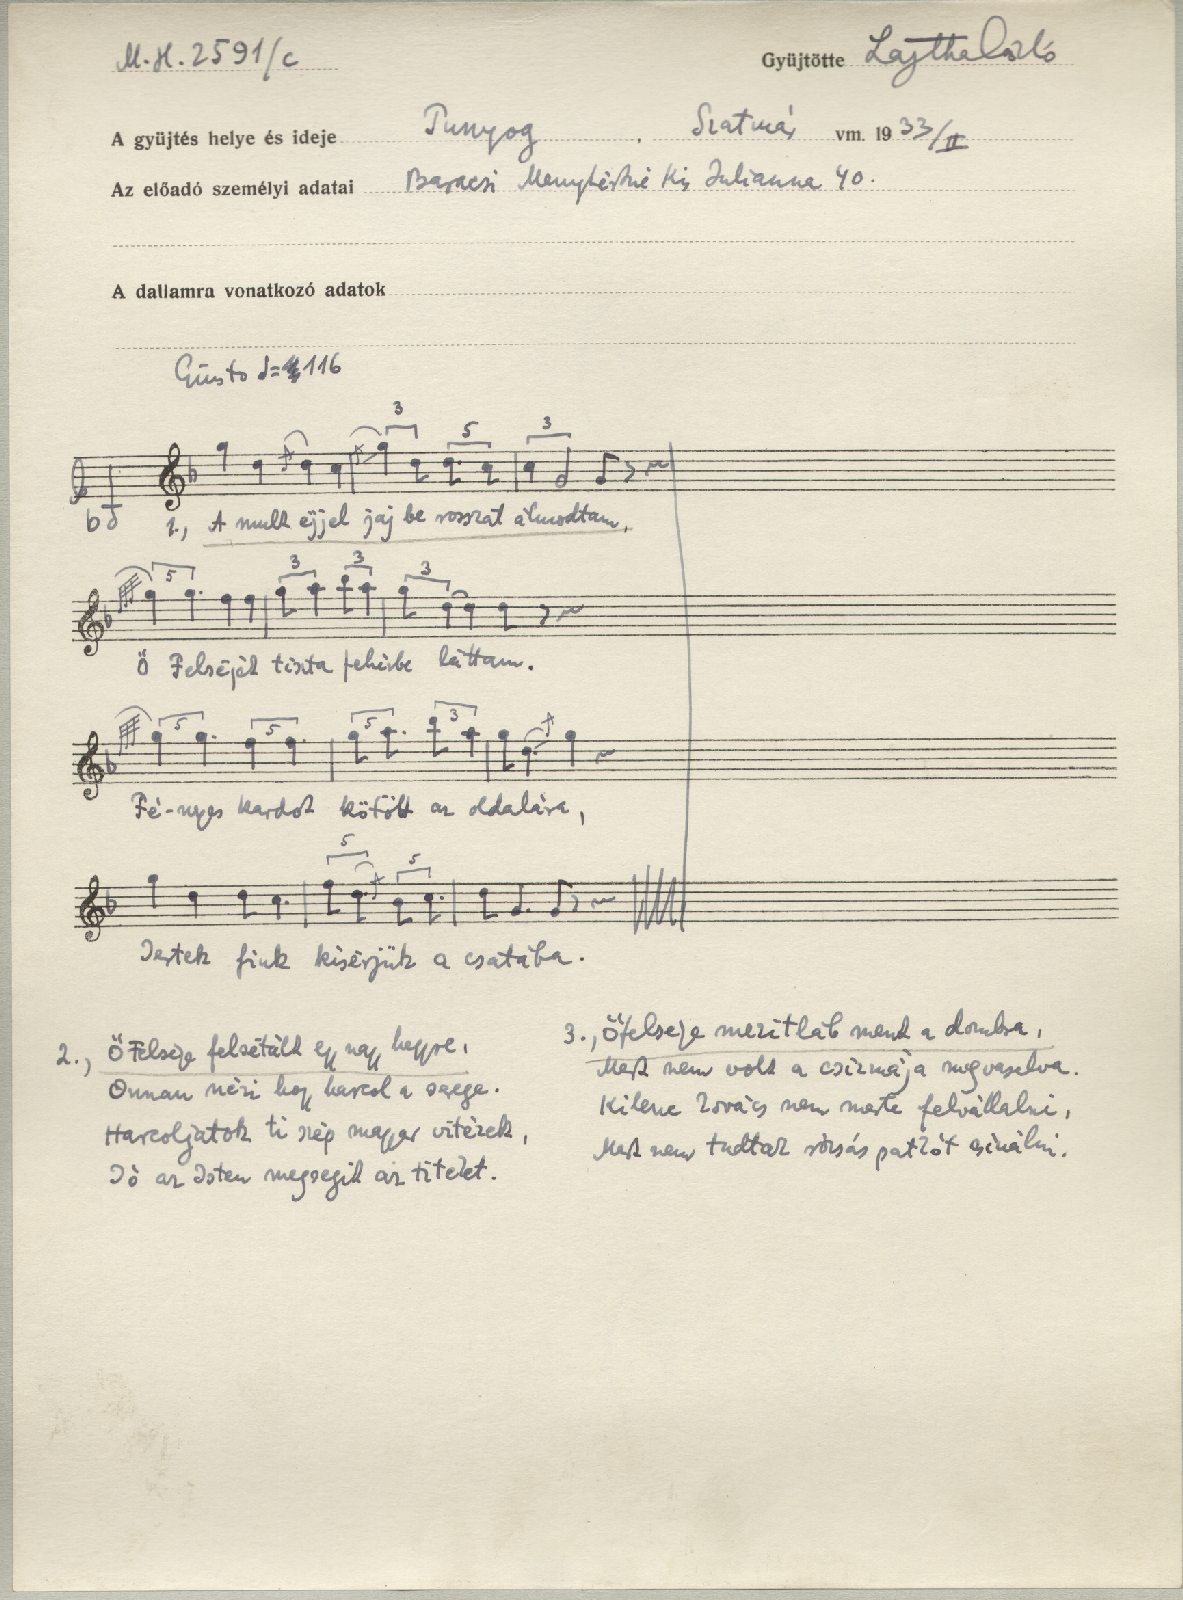 M.H. 2591/c
Gyüjtötte Lajtha László
A gyüjtés helye és ideje Tunyog, Szatmár vm. 1933/II
Az előadó személyi adatai Baracsi Menyhértné Kis Julianna 40.
A dallamra vonatkozó adatok
Giusto = 116
3 5 3
1., A mult éjjel jaj be rosszat álmodtam,
5 3 3 3
Ő Felségét tiszta fehérbe láttam.
5 5 5 3
Fé-nyes kardot kötött az oldalára,
5 5
Jertek fiuk kisérjük a csatába.
2., Ő Felsége felsétált egy nagy hegyre,
Onnan nézi hogy harcol a serege.
Harcoljatok ti szép magyar vitézek,
Jó az Isten megsegit az titeket.
3., Őfelsege mezitláb ment a domba,
Mert nem volt a csizmája megvasalva.
Kilenc kovács nem merte felvállalni,
Mert nem tudtak rózsás patkót csinálni.